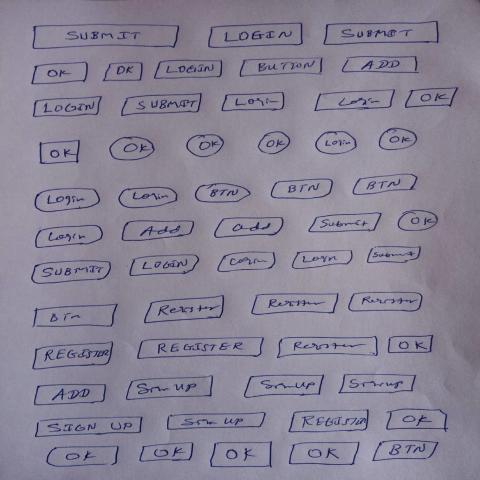 SUBMIT LOGIN SUBMIT
OK OK LOGIN BUTTON ADD
LOGIN SUBMIT Login Login OK
OK OK OK OK Login OK
Login Login BTN BTN BTN
Login Add add Submit OK
SUBMIT LOGIN Login Login Submit
BTn Register Register Register
REGISTER REGISTER Register OK
ADD Sign up Sign up Sign up
SIGN UP Sign up REGISTER OK
OK OK OK OK BTN